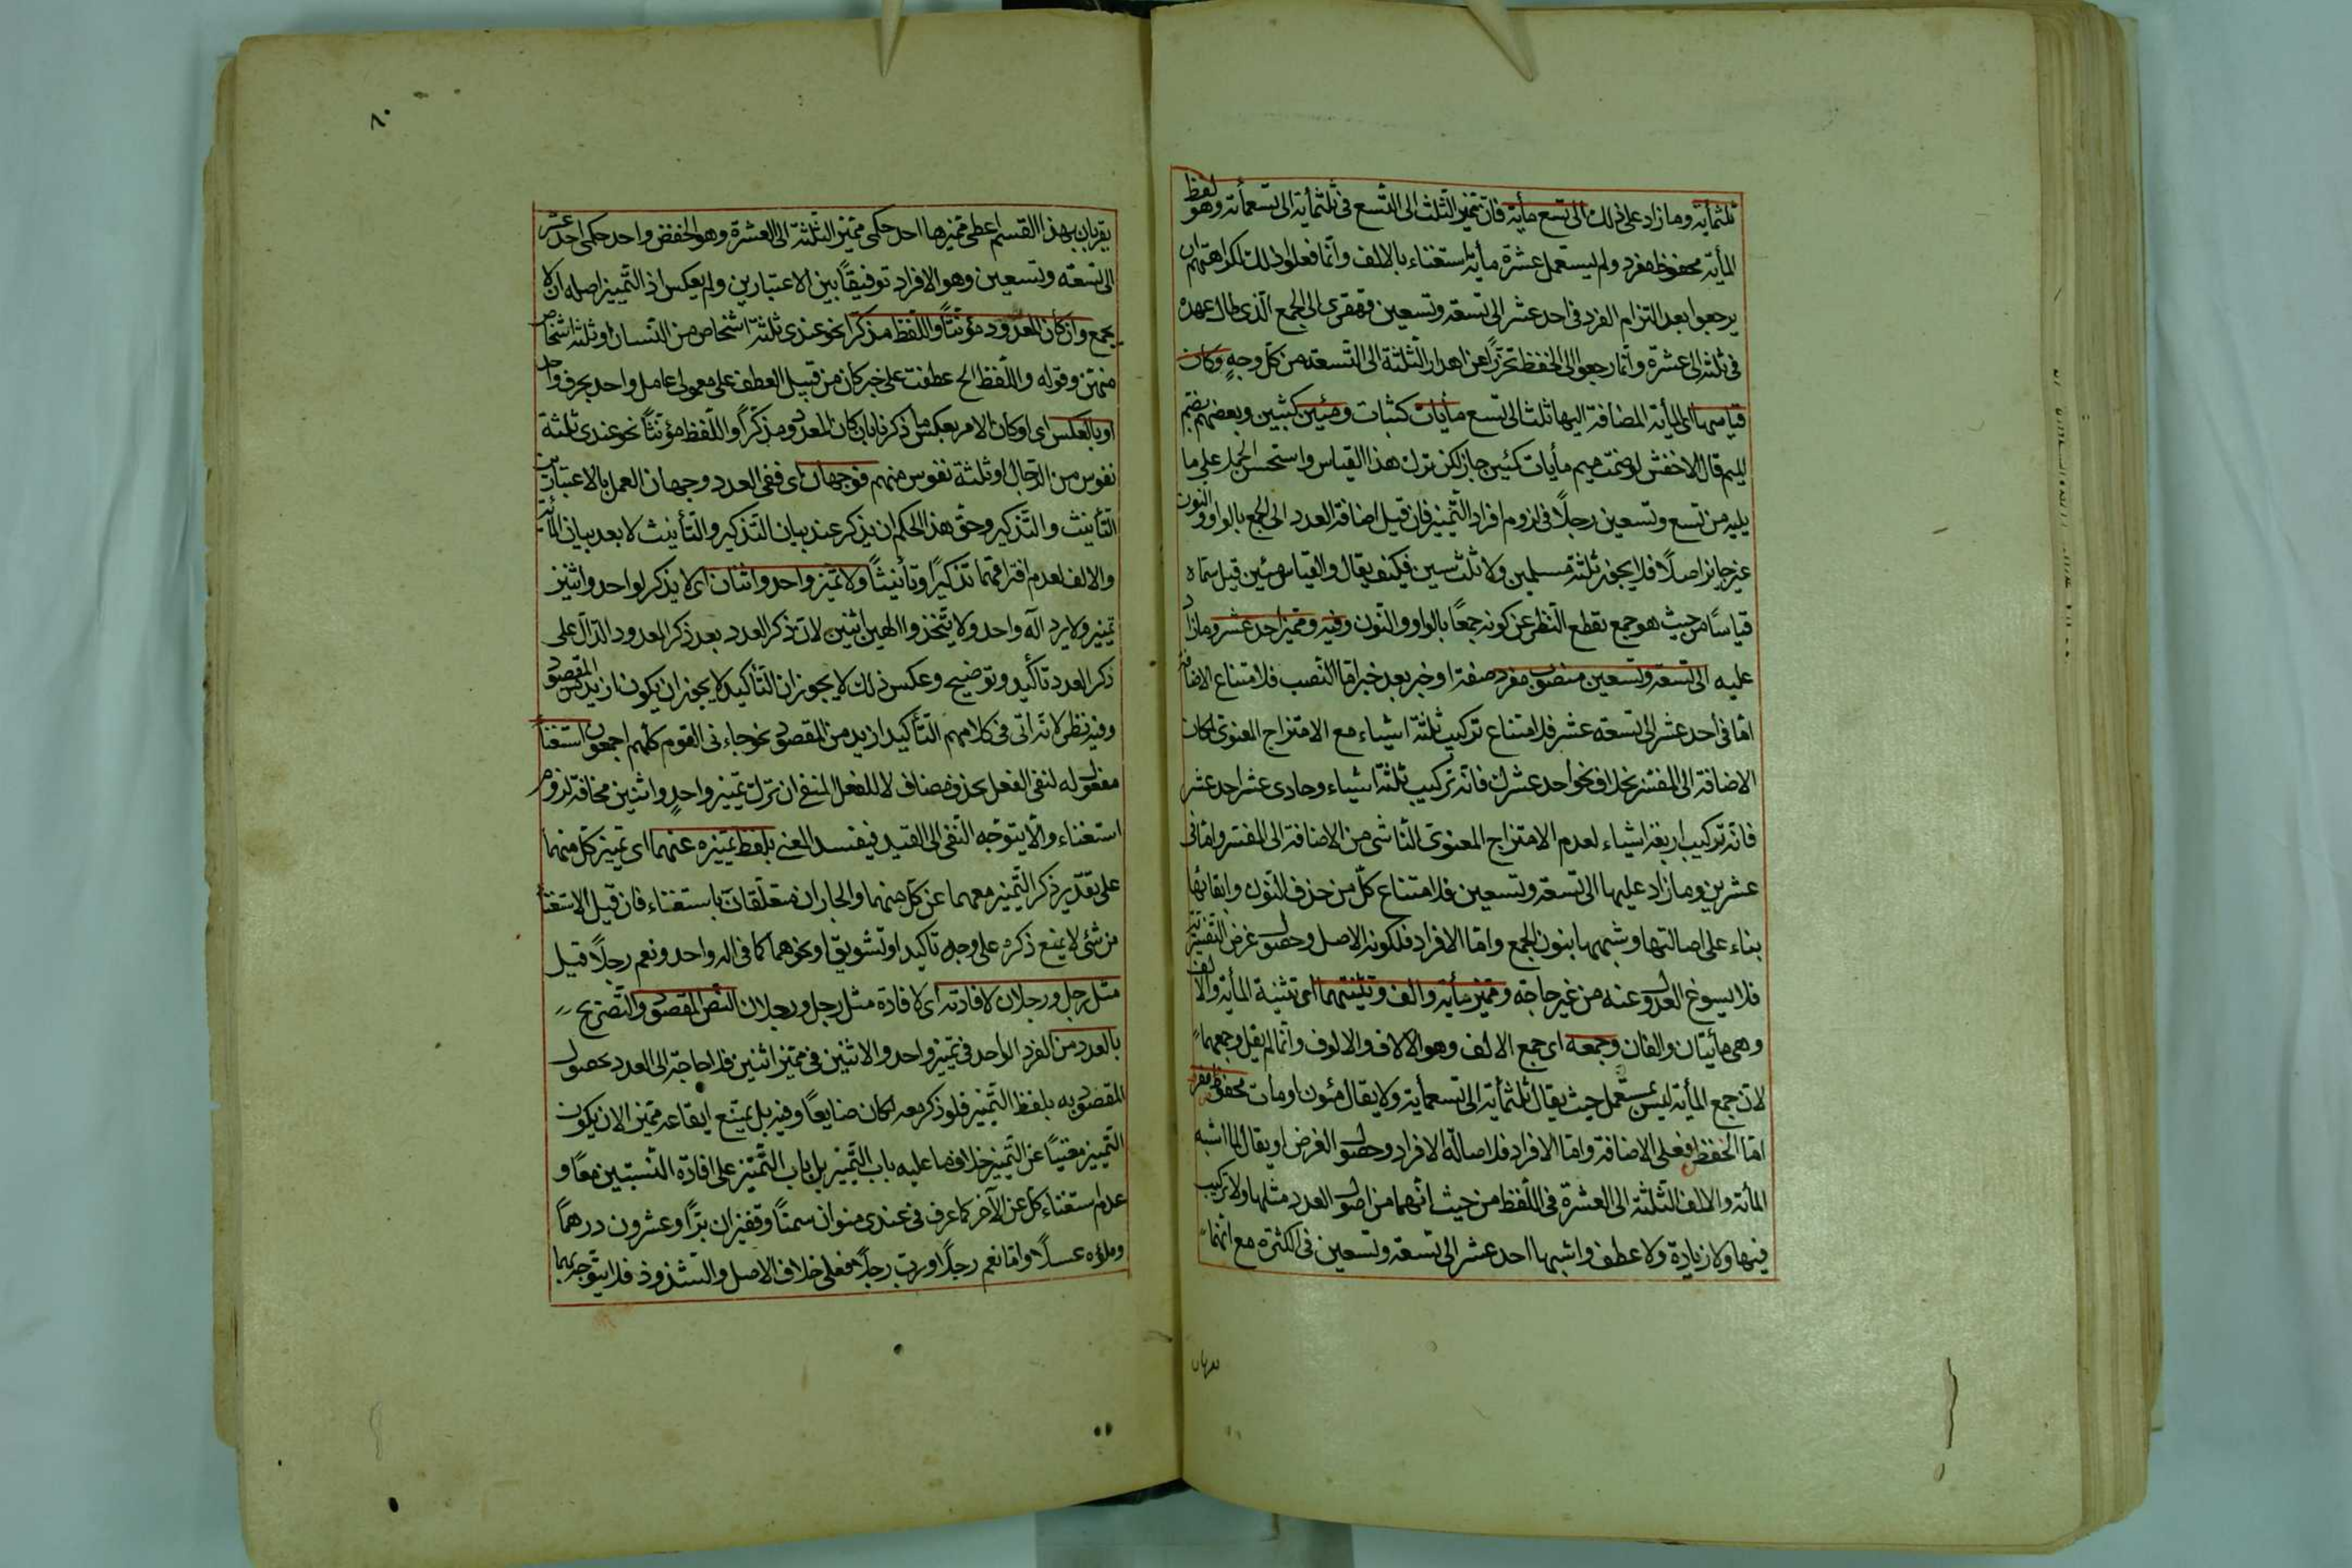 ثلثمأية وما زاد على ذلك الى تسع مأية فان تميز الثلث الى التسع فى ثلثمأية الى تسعمأية وهو لفظ
المأية مخفوظا مفرد ولم يستعمل عشرة مأية استغناء بالالف وانما فعلوا ذلك لكراهتهم ان
يرجعوا بعد التزام المفرد فى احد عشر الى تسعة وتسعين قهقرى الى الجمع الذى طال عهده
فى ثلثة الى عشرة وانما رجعوا الى الخفظ تحرزًا عن اهدار الثلثة الى التسعة من كل وجهٍ وكان
قياسها اى المأية المضافة اليها ثلث الى تسع مأيات كثبات ومئين كثبين وبعضهم بضم
الميم قال الاخفش لو ضمت ميم مأيات كئين جاز لكن ترك هذا القياس واستحسن الحمل على ما
يليه من تسع وتسعين رجلًا فى لزوم افراد التميز فان قيل اضافة العدد الى الجمع بالواو والنون
غير جايز اصلًا فلا يجوز ثلثة مسلمين ولا ثلث سنين فكيف يقال والقياس مئين قيل سماه
قياسًا من حيث هو جمع بقطع النظر عن كونه جمعًا بالواو والنون وفيه ومميز احد عشر وما زاد
عليه الى تسعة وتسعين منصوب مفرد صفة او خبر بعد خبر اما النصب فلامتناع الاضافة
اما فى احد عشر الى تسعة عشر فلامتناع تركيب ثلثة اشياء مع الامتزاج المعنوى لمكان
الاضافة الى المفسر بخلاف نحو احد عشرك فانه تركيب ثلثة اشياء وحادى عشر احد عشر
فانه تركيب اربعة اشياء لعدم الامتزاج المعنوى الناشى من الاضافة الى المفسر واما فى
عشرين وما زاد عليها الى تسعة وتسعين فلامتناع كلّ من حذف النون وابقائها
بناء على اصالتها وشبهها بنون الجمع واما الافراد فلكونه الاصل وحصول غرض التفسير به
فلا يسوغ العدول عنه من غير حاجة ومميز مأية والف وتثنيتهما اى تثنية المأية والالف
وهى مأيتان والفان وجمعه اى جمع الالف وهو الالاف والالوف وانما لم يقل وجمعهما
لان جمع المأية ليس بمستعمل حيث يقال ثلثمأية الى تسعمأية ولا يقال مئون او مات مخفوظ مفرد
اما الخفظ فعلى الاضافة واما الافراد فلاصالة الافراد وحصول الغرض او يقال لما اشبه
المأة والالف الثلثة الى العشرة فى اللفظ من حيث انهما من اصول العدد مثلها ولا تركيب
فيها ولا زيادة ولا عطف واشبها احد عشر الى تسعة وتسعين فى الكثرة مع انهما
يقربان
٨٠
يقربان بهذا القسم اعطى مميزها احد حكمى مميز الثلثة الى العشرة وهو الخفض واحد حكمى احد عشر
الى تسعة وتسعين وهو الافراد توفيقًا بين الاعتبارين ولم يعكس اذ التميز اصله ان لا
يجمع واذ كان المعدود مؤنثًا واللفظ مذكرًا نحو عندى ثلثة اشخاص من النسان او ثلثة اشخاص
منهن وقوله واللفظ الح عطفت على خبر كان من قبيل العطف على معمولى عامل واحد بحرف واحد
او بالعكس اى او كان الامر بعكس ما ذكرنا بان كان المعدود مذكرًا واللفظ مؤنثًا نحو عندى ثلثة
نفوس من الرجال او ثلثة نفوس منهم فوجهان اى ففى العدد وجهان العمل بالاعتبارين
التأنيث والتذكير وحق هذا الحكم ان يذكر عند بيان التذكير والتأنيث لا بعد بيان المأية
والالف لعدم افتراقهما تذكيرًا وتأنيثًا ولا تميز واحد واثنان اى لا يذكر لواحد واثنين
تميز ولا يرد اله واحد ولا يتخذوا الهين اثنين لان ذكر العدد بعد ذكر المعدود الدال على
ذكر العدد تأكيد وتوضيح وعكس ذلك لا يجوز ان التأكيد لا يجوز ان يكون ازيد من المقصود
وفيه نظر لانه اتى فى كلامهم التأكيد ازيد من المقصود نحو جاءنى القوم كلهم اجمعون استغناءً
مفعول له لنفى الفعل بحذف مضاف لا للفعل المنفى ان ترك تميز واحدٍ واثنين مخافة لزوم
استغناء والا يتوجه النفى الى القيد فيفسد المعنى بلفظ تميزه عنهما اى تميز كل منهما
على تقدير ذكر التميز معهما عن كل منهما والجاران متعلقان باستغناء فان قيل الاستغناء
من شئ لا يمنع ذكره على وجه تاكيد او تشويق او نحوهما كما فى اله واحد ونعم رجلًا قيل
مثل رجل ورجلان لافادته اى لافادة مثل رجل ورجلان النص المقصود والتصريح
بالعدد من الفرد الواحد فى تميز واحد والاثنين فى مميز اثنين فلا حاجة الى العدد لحصول
المقصود به بلفظ التميز فلو ذكر معه لكان ضايعًا وفيه بل يمتنع ايقاعه مميز الان يكون
التميز مغنيًا عن التميز خلاف ما عليه باب التميز بل باب التميز على افادة النسبتين معًا و
عدم استغناء كل عن الآخر كما عرف فى عندى منوان سمنًا وقفيزان برًا وعشرون درهمًا
وملؤه عسلًا واما نعم رجلًا ورب رجلًا فعلى خلاف الاصل والشذوذ فلا يتوجه بهما